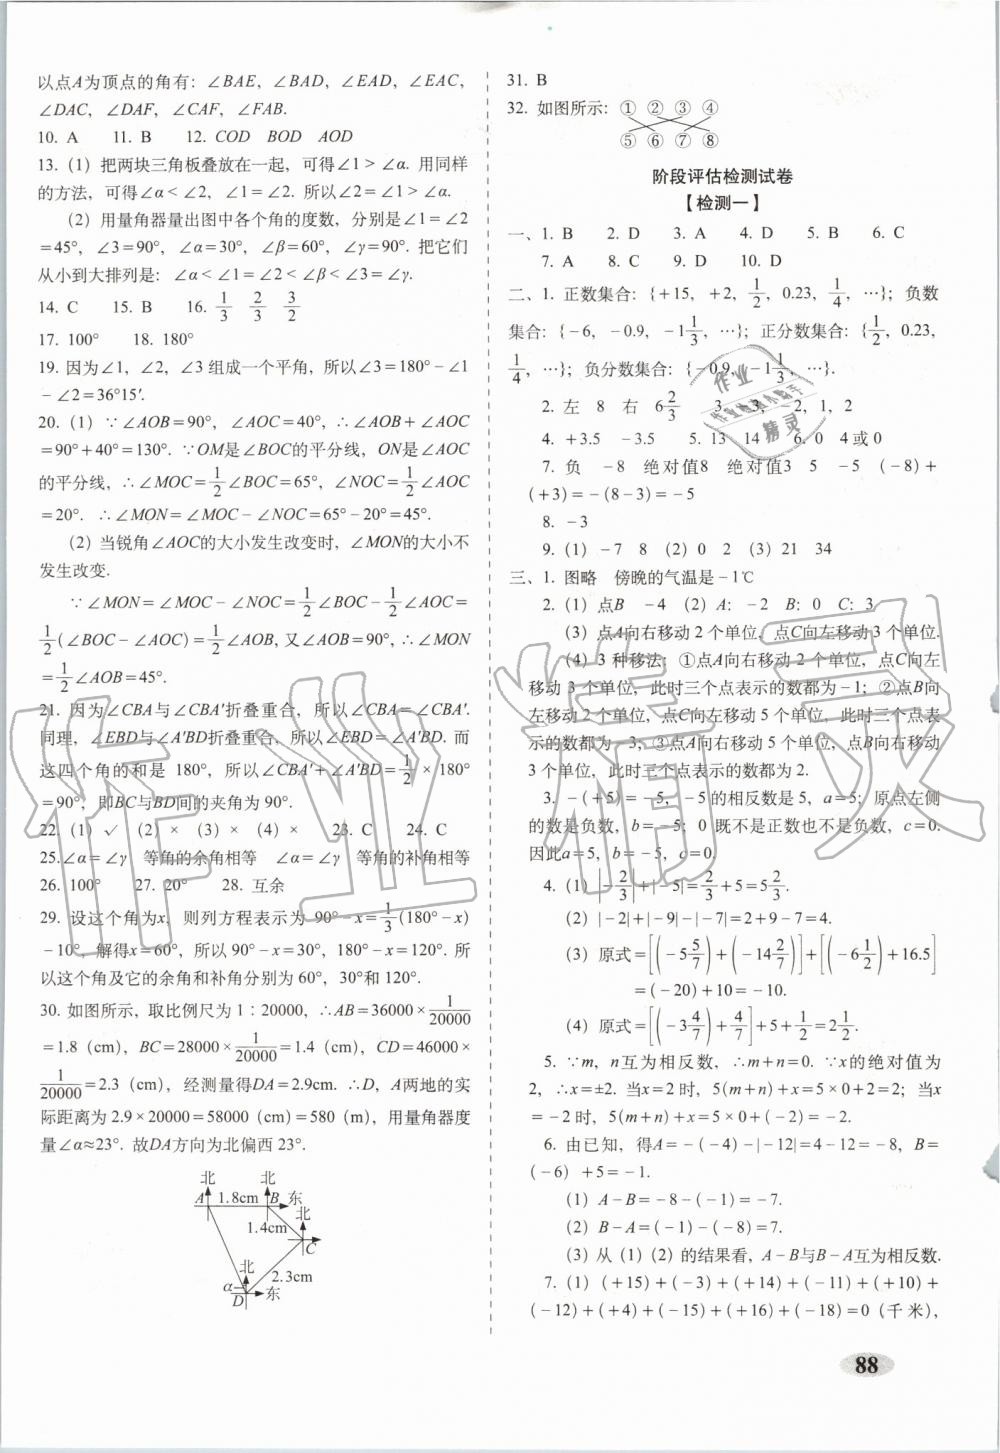 以点A为顶点的角有：∠BAE，∠BAD，∠EAD，∠EAC，
∠DAC，∠DAF，∠CAF，∠FAB.
10. A  11. B  12. COD  BOD  AOD
13. (1) 把两块三角板叠放在一起，可得∠1>∠α. 用同样
的方法，可得∠α<∠2，∠1=∠2. 所以∠2=∠1>∠α.
(2) 用量角器量出图中各个角的度数，分别是∠1=∠2
=45°，∠3=90°，∠α=30°，∠β=60°，∠γ=90°. 把它们
从小到大排列是：∠α<∠1=∠2<∠β<∠3=∠γ.
14. C  15. B  16. 1/3  2/3  3/2
17. 100°  18. 180°
19. 因为∠1，∠2，∠3 组成一个平角，所以∠3=180°-∠1
-∠2=36°15′.
20. (1) ∵∠AOB=90°，∠AOC=40°，∴∠AOB+∠AOC
=90°+40°=130°. ∵OM是∠BOC的平分线，ON是∠AOC
的平分线，∴∠MOC=1/2∠BOC=65°，∠NOC=1/2∠AOC
=20°. ∴∠MON=∠MOC-∠NOC=65°-20°=45°.
(2) 当锐角∠AOC的大小发生改变时，∠MON的大小不
发生改变.
∵∠MON=∠MOC-∠NOC=1/2∠BOC-1/2∠AOC=
1/2(∠BOC-∠AOC)=1/2∠AOB, 又∠AOB=90°，∴∠MON
=1/2∠AOB=45°.
21. 因为∠CBA与∠CBA′折叠重合，所以∠CBA=∠CBA′.
同理，∠EBD与∠A′BD折叠重合，所以∠EBD=∠A′BD. 而
这四个角的和是 180°，所以∠CBA′+∠A′BD=1/2×180°
=90°，即BC与BD间的夹角为90°.
22. (1) ✓ (2) × (3) × (4) ×  23. C  24. C
25.∠α=∠γ  等角的余角相等  ∠α=∠γ  等角的补角相等
26. 100°  27. 20°  28. 互余
29. 设这个角为x，则列方程表示为 90°-x=1/3(180°-x)
-10°，解得x=60°，所以 90°-x=30°，180°-x=120°. 所
以这个角及它的余角和补角分别为 60°，30°和 120°.
30. 如图所示，取比例尺为 1∶20000，∴AB=36000×1/20000
=1.8 (cm)，BC=28000×1/20000=1.4 (cm)，CD=46000×
1/20000=2.3 (cm)，经测量得DA=2.9cm. ∴D，A两地的实
际距离为 2.9×20000=58000 (cm)=580 (m)，用量角器度
量∠α≈23°. 故DA方向为北偏西 23°.
北 北
A 1.8cm B 东
1.4cm 北
C
北 2.3cm
α
D 东
31. B
32. 如图所示：① ② ③ ④
⑤ ⑥ ⑦ ⑧
阶段评估检测试卷
【检测一】
一、1. B  2. D  3. A  4. D  5. B  6. C
7. A  8. C  9. D  10. D
二、1. 正数集合：{+15，+2，1/2，0.23，1/4，…}；负数
集合：{-6，-0.9，-1 1/3，…}；正分数集合：{1/2，0.23，
1/4，…}；负分数集合：{-0.9，-1 1/3，…}.
2. 左  8  右  6 2/3  3. -3，-2，1，2
4. +3.5  -3.5  5. 13  14  6. 0  4或0
7. 负  -8  绝对值8  绝对值3  5  -5  (-8)+
(+3)=-(8-3)=-5
8. -3
9. (1) -7  8  (2) 0  2  (3) 21  34
三、1. 图略  傍晚的气温是-1℃
2. (1) 点B  -4  (2) A：-2  B：0  C：3
(3) 点A向右移动 2 个单位，点C向左移动 3 个单位.
(4) 3 种移法：①点A向右移动 1 个单位，点C向左
移动 3 个单位，此时三个点表示的数都为-1；②点B向
左移动 2 个单位，点C向左移动 5 个单位，此时三个点表
示的数都为-3；③点A向右移动 5 个单位，点B向右移动
3 个单位，此时三个点表示的数都为 2.
3. -(+5)=-5，-5的相反数是 5，a=5；原点左侧
的数是负数，b=-5；0 既不是正数也不是负数，c=0.
因此a=5，b=-5，c=0.
4. (1) |-2/3|+|-5|=2/3+5=5 2/3.
(2) |-2|+|-9|-|-7|=2+9-7=4.
(3) 原式=[(-5 5/7)+(-14 2/7)]+[(-6 1/2)+16.5]
=(-20)+10=-10.
(4) 原式=[(-3 4/7)+4/7]+5+1/2=2 1/2.
5. ∵m，n互为相反数，∴m+n=0. ∵x的绝对值为
2，∴x=±2. 当x=2 时，5(m+n)+x=5×0+2=2；当x
=-2 时，5(m+n)+x=5×0+(-2)=-2.
6. 由已知，得A=-(-4)-|-12|=4-12=-8，B=
(-6)+5=-1.
(1) A-B=-8-(-1)=-7.
(2) B-A=(-1)-(-8)=7.
(3) 从 (1) (2) 的结果看，A-B与B-A互为相反数.
7. (1) (+15)+(-3)+(+14)+(-11)+(+10)+
(-12)+(+4)+(-15)+(+16)+(-18)=0 (千米)，
88
作业精灵